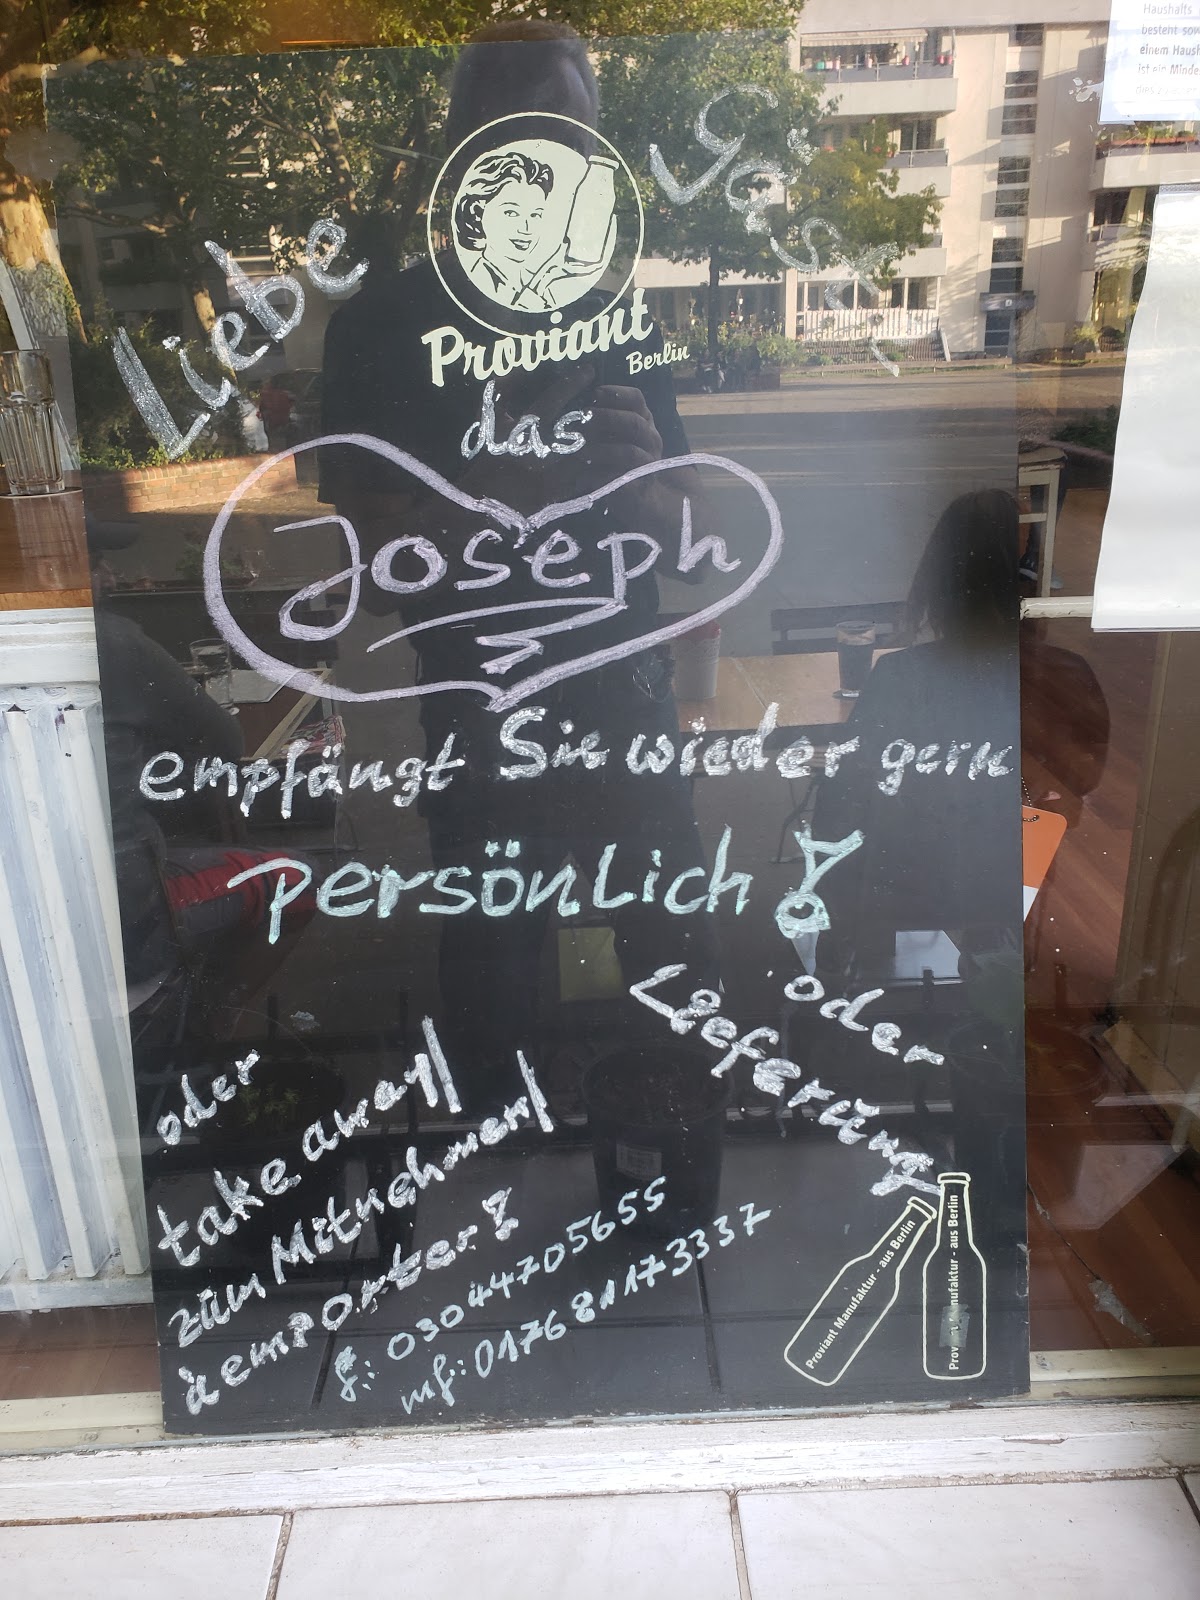 Haushalts
besteht sow
einem Haush
ist ein Minde
Liebe Gäste
Proviant
Berlin
das
Joseph
empfängt Sie wieder gern
persönlich!
oder
Lieferung
oder
take away/
zum Mitnehmen/
àemporter!
f.: 030 44705655
mf.: 0176 81173337
Proviant Manufaktur - aus Berlin
Proviant Manufaktur - aus Berlin